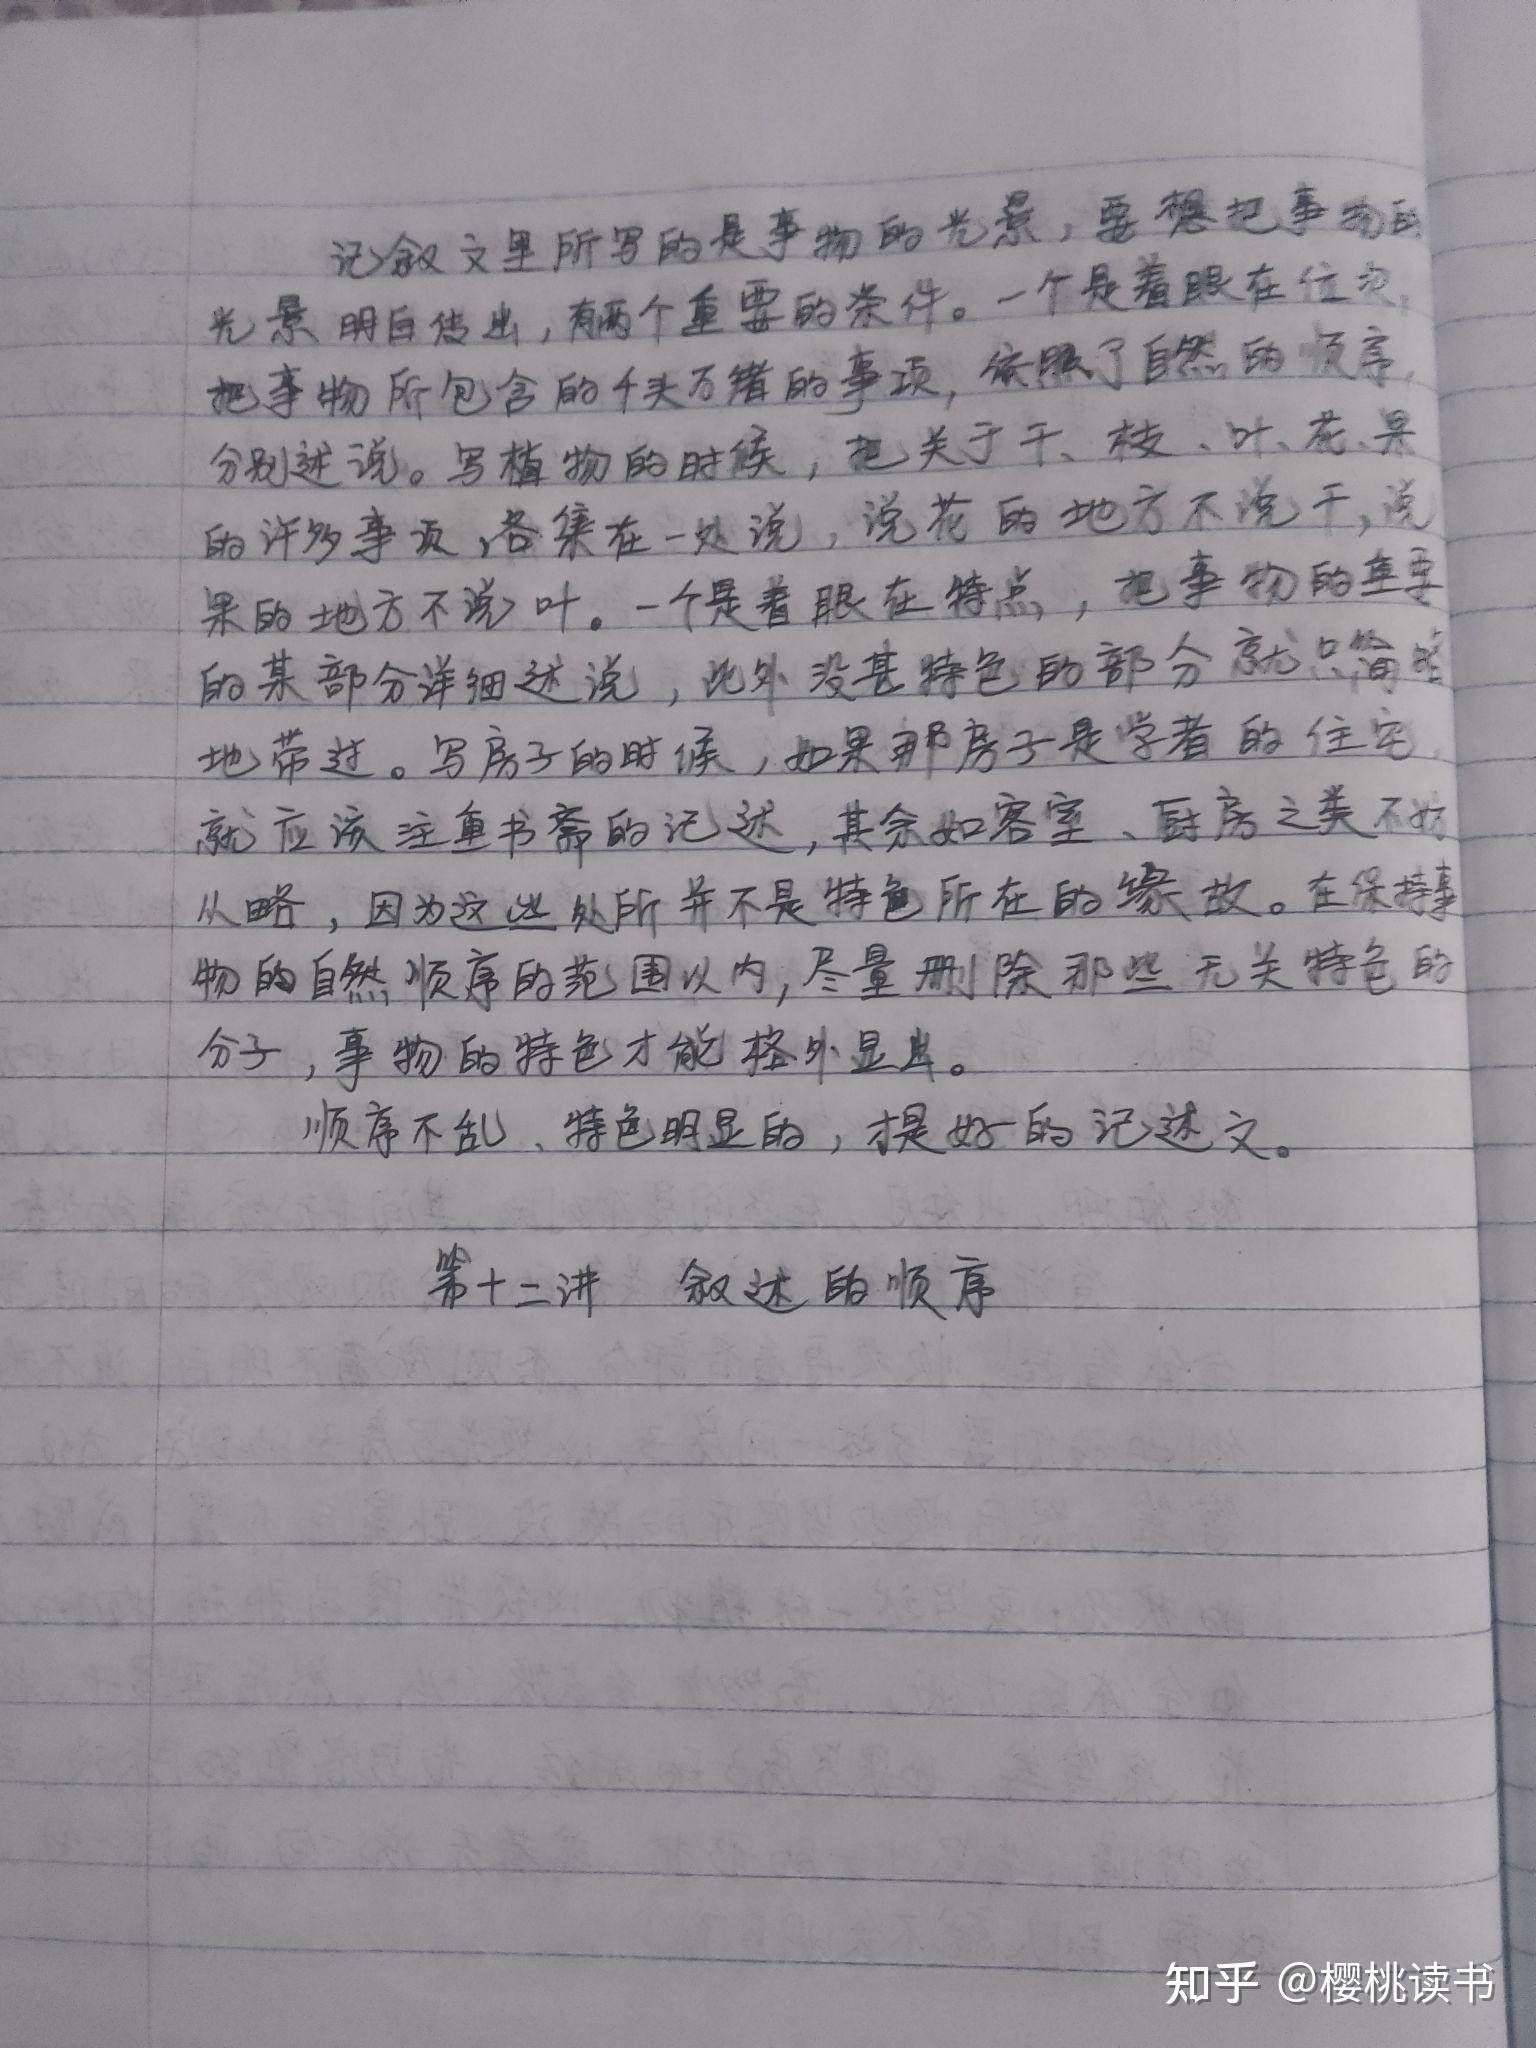 记叙文里所写的是事物的光景，要想把事物的
光景明白传出，有两个重要的条件。一个是着眼在位次，
把事物所包含的千头万绪的事项，依照了自然的顺序，
分别述说。写植物的时候，把关于干、枝、叶、花、果
的许多事项，各集在一处说，说花的地方不说干，说
果的地方不说叶。一个是着眼在特点，把事物的重要
的某部分详细述说，此外没甚特色的部分就只简略
地带过。写房子的时候，如果那房子是学者的住宅，
就应该注重书斋的记述，其余如客室、厨房之类不妨
从略，因为这些处所并不是特色所在的缘故。在保持事
物的自然顺序的范围以内，尽量删除那些无关特色的
分子，事物的特色才能格外显出。
顺序不乱、特色明显的，才是好的记述文。
第十二讲 叙述的顺序
知乎 @樱桃读书